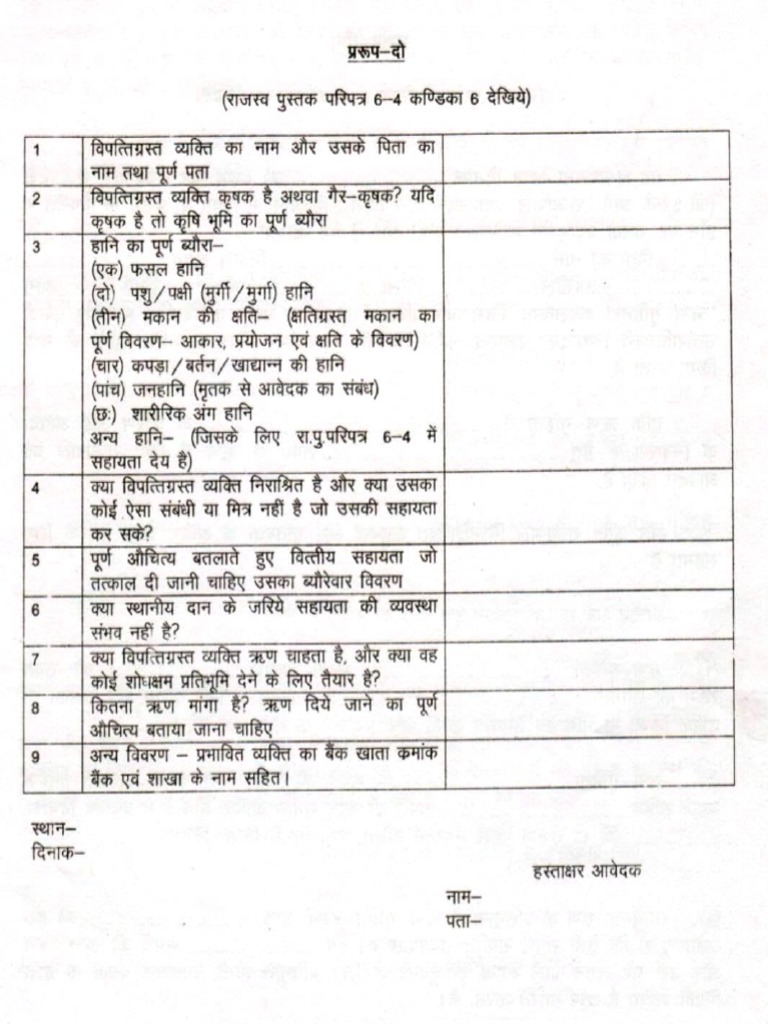 प्ररूप–दो
(राजस्व पुस्तक परिपत्र 6–4 कण्डिका 6 देखिये)
1 विपत्तिग्रस्त व्यक्ति का नाम और उसके पिता का
नाम तथा पूर्ण पता
2 विपत्तिग्रस्त व्यक्ति कृषक है अथवा गैर–कृषक? यदि
कृषक है तो कृषि भूमि का पूर्ण ब्यौरा
3 हानि का पूर्ण ब्यौरा–
(एक) फसल हानि
(दो) पशु/पक्षी (मुर्गी/मुर्गा) हानि
(तीन) मकान की क्षति– (क्षतिग्रस्त मकान का
पूर्ण विवरण– आकार, प्रयोजन एवं क्षति के विवरण)
(चार) कपड़ा/बर्तन/खाद्यान्न की हानि
(पांच) जनहानि (मृतक से आवेदक का संबंध)
(छः) शारीरिक अंग हानि
अन्य हानि– (जिसके लिए रा.पु.परिपत्र 6–4 में
सहायता देय है)
4 क्या विपत्तिग्रस्त व्यक्ति निराश्रित है और क्या उसका
कोई ऐसा संबंधी या मित्र नहीं है जो उसकी सहायता
कर सके?
5 पूर्ण औचित्य बतलाते हुए वित्तीय सहायता जो
तत्काल दी जानी चाहिए उसका ब्यौरेवार विवरण
6 क्या स्थानीय दान के जरिये सहायता की व्यवस्था
संभव नहीं है?
7 क्या विपत्तिग्रस्त व्यक्ति ऋण चाहता है, और क्या वह
कोई शोधक्षम प्रतिभूमि देने के लिए तैयार है?
8 कितना ऋण मांगा है? ऋण दिये जाने का पूर्ण
औचित्य बताया जाना चाहिए
9 अन्य विवरण – प्रभावित व्यक्ति का बैंक खाता क्रमांक
बैंक एवं शाखा के नाम सहित।
स्थान–
दिनाक–
हस्ताक्षर आवेदक
नाम–
पता–